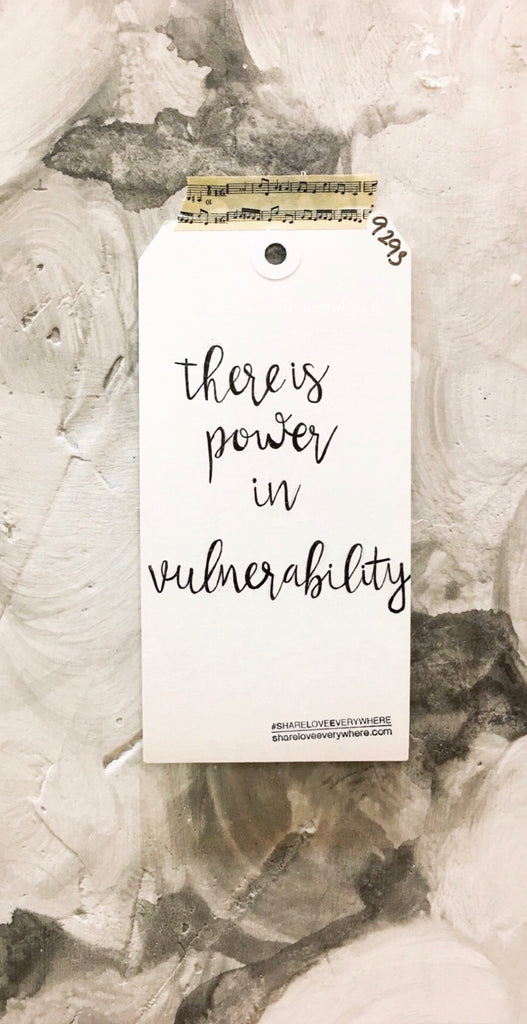 9293
there is
power
in
vulnerability
#SHARELOVEEVERYWHERE
shareloveeverywhere.com